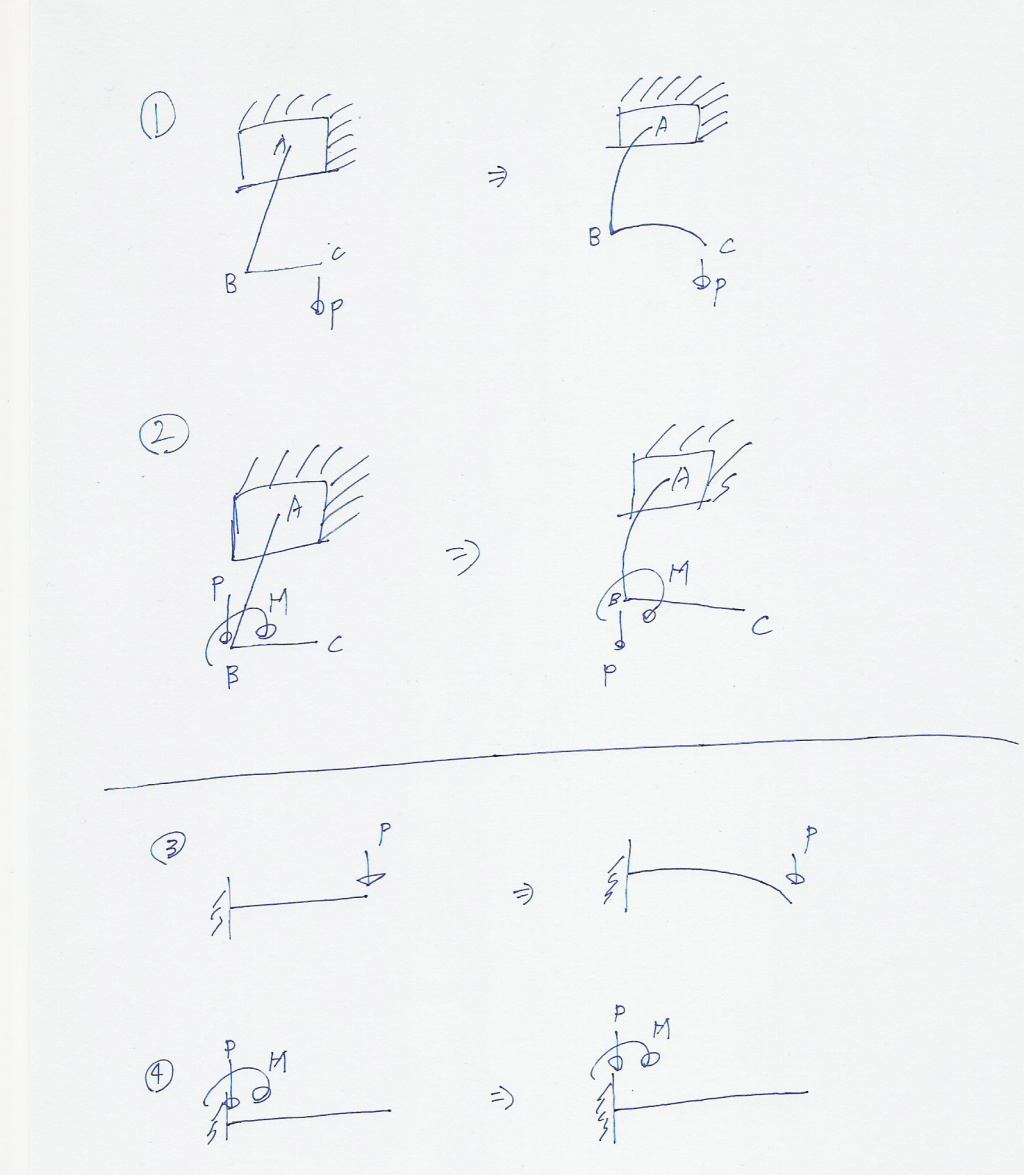 ①
A
A
⇒
B
C
P
B
C
P
②
A
A
⇒
P
M
M
B
C
B
C
P
③
P
P
⇒
④
P
M
P
M
⇒